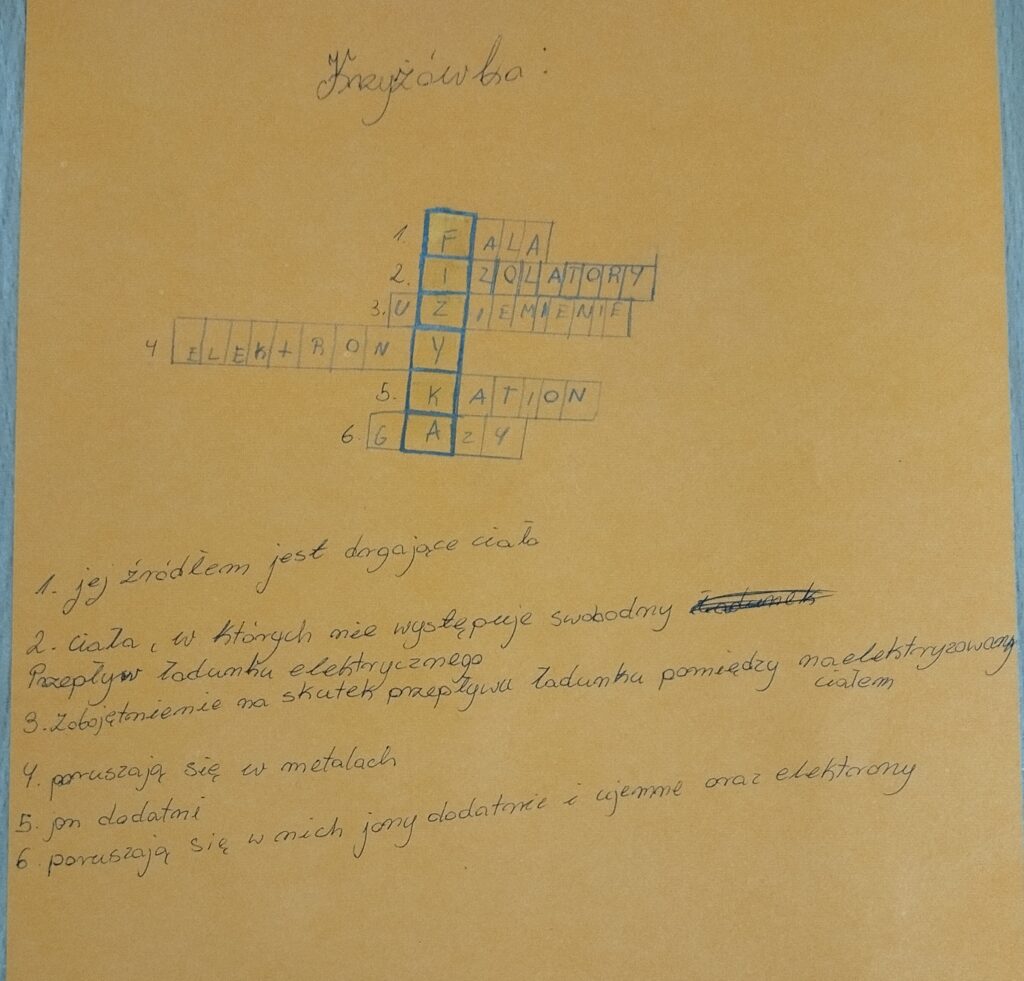 Krzyżówka:
1. FALA
2. IZOLATORY
3. UZIEMIENIE
4 ELEKTRONY
5. KATION
6. GAZY
1. jej źródłem jest drgające ciało
2. ciała, w których nie występuje swobodny
Przepływ ładunku elektrycznego
3. Zobojętnienie na skutek przepływu ładunku pomiędzy naelektryzowanym
ciałem
4. poruszają się w metalach
5. jon dodatni
6. poruszają się w nich jony dodatnie i ujemne oraz elektrony